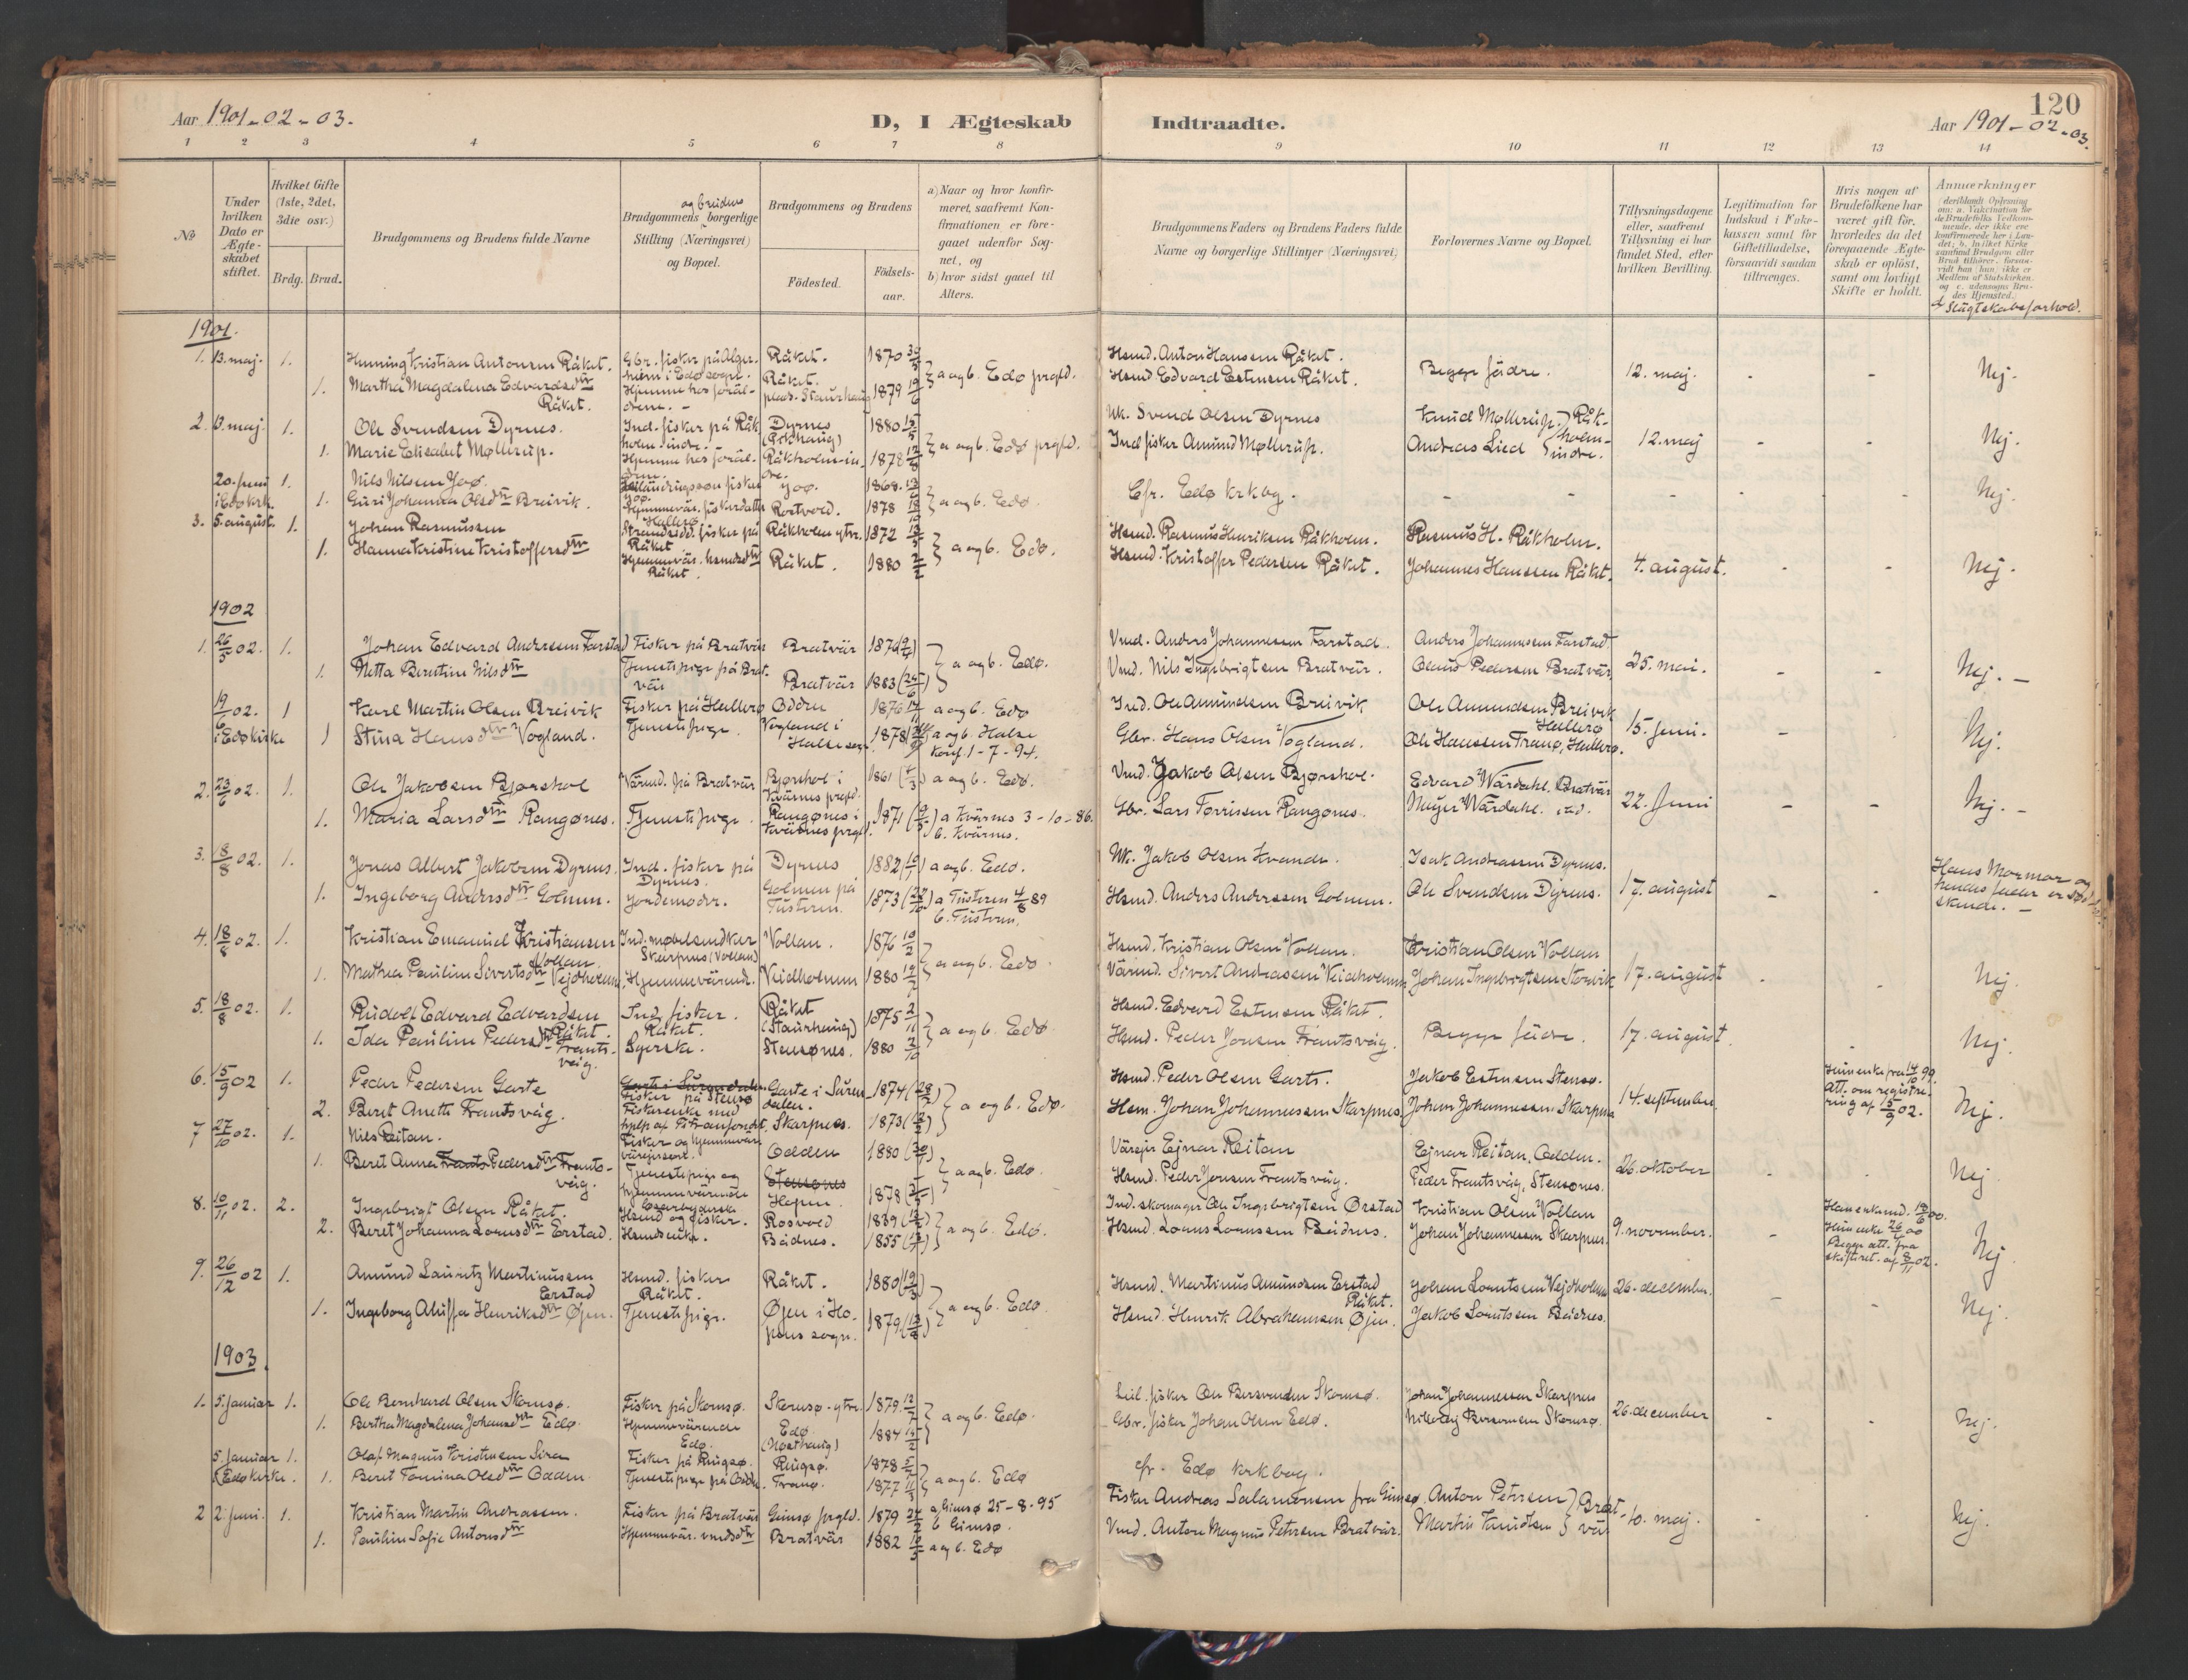 120
Aar 1901-02-03.
D, I Ægteskab Indtraadte.
Aar 1901-02-03.
1 2 3 4 5 6 7 8 9 10 11 12 13 14
No
Under hvilken Dato er Ægteskabet stiftet.
Hvilket Gifte (1ste, 2det, 3die osv.)
Brdg. Brud.
Brudgommens og Brudens fulde Navne
og brudens
Brudgommens borgerlige Stilling (Næringsvei) og Bopæl.
Brudgommens og Brudens
Fødested. Fødselsaar.
a) Naar og hvor konfirmeret, saafremt Konfirmationen er foregaaet udenfor Sognet, og
b) hvor sidst gaaet til Alters.
Brudgommens Faders og Brudens Faders fulde Navne og borgerlige Stillinger (Næringsvei)
Forlovernes Navne og Bopæl.
Tillysningsdagene eller, saafremt Tillysning ei har fundet Sted, efter hvilken Bevilling.
Legitimation for Indskud i Enkekassen samt for Giftetilladelse, forsaavidt saadan tiltrænges.
Hvis nogen af Brudefolkene har været gift før, hvorledes da det foregaaende Ægteskab er opløst, samt om lovligt Skifte er holdt.
Anmærkninger
d Slägtskabsforhold.
1901.
1. 13. maj. 1. Henning Kristian Antonsen Råket. Gbr. fisker på Råket. 1870 Hsmd. Anton Hansen Råket.
1. Martha Magdalena Edvardsdtr Råket. Hjemme hos foräldrene. Råket. 1879 a og b. Edø prgld. Hsmd Edvard Estensen Råket. Begge fädre. 12. maj. - - Nej.
2. 13. maj. 1. Ole Svendsen Dyrnes. Ind. fisker på Råkholm indre. Dyrnes 1880 Uk. Svend Olsen Dyrnes Knud Møllerup.
1. Marie Elisabet Møllerup. Hjemme hos foräldrene. Råkholm-indre. 1878 a og b. Edø prgld. Ind fisker Amund Møllerup. Andreas Lied Råkholm-indre. 12. maj - - Nej.
20. juni i Edø krk. 1. Nils Nilsen Yoø. fisker Yoø. 1868. Cfr. Edø krkbog. - - - - Nej.
1. Guri Johanna Olsdtr Breivik. Rostvold. 1878 a og b. Edø.
3. 5. august. 1. Johan Rasmussen Strandsidd. fisker på Råket Råkholm ytre. 1872 Hsmd. Rasmus Henriksen Råkholm. Rasmus H. Råkholm.
1. Hanna Kristine Kristoffersdtr Hjemmevär. hsmdsdtr Råket. Råket. 1880 a og b. Edø. Hsmd. Kristoffer Pedersen Råket. Johannes Hanssen Råket. 4. august. - - Nej.
1902
1. 26/5 02. 1. Johan Edvard Andersen Farstad Fisker på Bratvär Bratvär Vmd. Anders Johannesen Farstad. Anders Johannesen Farstad.
1. Netta Berntine Nilsdtr Tjenestepige på Bratvär Bratvär 1883 a og b. Edø. Vmd. Nils Ingebrigtsen Bratvär. Olaus Pedersen Bratvär 25. mai. - - Nej. -
19/6 02. i Edø kirke 1 Karl Martin Olsen Breivik Fisker på Hallerø Odden 1876 a og b. Edø Ind. Ole Amundsen Breivik Ole Amundsen Breivik Hallerø
1 Stina Hansdtr Vogland. Tjenestepige. Vogland i Halse sogn. 1878 a og b. Halse konf. 1-7-94. Gbr. Hans Olsen Vogland. Ole Hanssen Tranø, Hallerø. 15. juni. - Nej.
2. 23/6 02. 1. Ole Jakobsen Bjørshol Värmd. på Bratvär Bjørshol i Kvärnes prgld. 1861 a og b. Edø. Vmd. Jakob Olsen Bjørshol. Edvard Wärdahl. Bratvär
1. Maria Larsdtr Rangønes. Tjenestepige Rangønes i Kvärnes prgld. 1871 a Kvärnes 3-10-86. b. Kvärnes. Gbr. Lars Torrissen Rangønes. Meyer Wärdahl. 22. juni - - Nej. -
3. 18/8 02. 1. Jonas Albert Jakobsen Dyrnes. Ind. fisker på Dyrnes. Dyrnes 1882 a og b. Edø. Uk. Jakob Olsen Kvande. Isak Andreassen Dyrnes.
1. Ingeborg Andersdtr Golmen. Jordemoder. Golmen på Tusteren. 1873 a Tusteren 4/8 89 b. Tusteren. Hsmd. Anders Anderssen Golmen. Ole Svendsen Dyrnes. 17. august - - Hans Mormor og hendes fader er søskende. -
4. 18/8 02. 1. Kristian Emanuel Kristiansen Vollan Ind. møbelsnedker Skarpnes (Vollan) Vollan. 1876 Hsmd. Kristian Olsen Vollan. Kristian Olsen Vollan
1. Mathea Pauline Sivertsdtr Vejdholmen. Hjemmevärend. Veidholmen 1880 a og b. Edø. Värmd. Sivert Andreassen Veidholmen Johan Ingebrigtsen Storvik 17. august - - Nej.
5. 18/8 02. 1. Rudolf Edvard Edvardsen Råket. Ind. fisker. Råket. Råket (Staurhaug) 1875 2/11 Hsmd. Edvard Estensen Råket.
1. Ida Pauline Pedersdtr Frantsvåg. Syerske. Stensønes. 1880 a og b. Edø. Hsmd. Peder Jensen Frantsvåg. Begge fädre. 17. august. - Nej.
6. 15/9 02 1. Peder Pedersen Garte Fisker på Stensø Garte i Surendalen. 1874 Hsmd. Peder Olsen Garte. Jakob Estensen Stensø. Hun enke fra 99.
2. Beret Anette Frantsvåg. Fiskerenke Skarpnes. 1873 a og b. Edø. Hsm. Johan Johannessen Skarpnes. Johan Johannessen Skarpnes 14. september. Att. om registrering af 15/9 02. Nej.
7 27/10 02. 1. Nils Reitan. Fisker og hjemmevär. Odden 1880 Värejer Ejnar Reitan Ejnar Reitan, Odden.
1. Beret Anna Frants Pedersdtr Frantsvåg. Tjenestepige og hjemmevärende Stensønes Hopen 1878 a og b. Edø. Hsmd. Peder Jensen Frantsvåg. Peder Frantsvåg, Stensønes. 26. oktober - - Nej.
8. 10/11 02. 2. Ingebrigt Olsen Råket. Hsmd og fisker. Rosvold 1839 Ind. skomager Ole Ingebrigtsen Ørstad Kristian Olsen Vollan Han enkemd.
2. Beret Johanna Lornsdtr Erstad. Hsmdsenke. Bådnes. 1855 a og b. Edø. Hsmd. Lorns Lornssen Bådnes. Johan Johannessen Skarpnes. 9. november. - Hun enke Begge att. fra skifteret. af 8/11 02. Nej
9. 26/12 02 1. Amund Lauritz Martinussen Erstad Hsmd. fisker Råket. Råket. 1880 Hsmd. Martinus Amundsen Erstad Råket. Johan Lorntsen Vejdholmen 26. december.
1. Ingeborg Aluffa Henriksdtr Øjen. Tjenestepige. Øjen i Hopens sogn. 1879 a og b. Edø. Hsmd. Henrik Abrahamsen Øjen. Jakob Lorntssen Bådnes. - - Nej.
1903.
1. 5. januar 1. Ole Bernhard Olsen Skomsø. Fisker på Skomsø. Skomsø-ytre. 1879 fisker Ole Berntsen Skomsø. Johan Johannessen Skarpnes
1. Bertha Magdalena Johansdtr Edø. Hjemmevärende Edø. Edø 1884 a og b. Edø. Gbr. fisker Johan Olsen Edø. Skomsø. 26. december - - Nej.
5. januar i Edø kirke. 1. Olaf Magnus Kristensen Sira Fisker på Ringsø. Ringsø. 1878 cfr. Edø krkbog.
1. Beret Tomina Olsdtr Odden Tjenestepige på Odden. Tranø. 1877 a og b. Edø
2 2. juni. 1. Kristian Martin Andreassen. Fisker på Bratvär Gimsø prgld. 1879 a Gimsø 25-8-95 b Gimsø. Fisker Andreas Salamonsen fra Gimsø. Anton Petersen
1. Pauline Sofie Antonsdtr Hjemmevär. vmdsdtr Bratvär 1882 a og b. Edø Vmd. Anton Magnus Petersen Bratvär. Martin Knudtsen Bratvär 10. maj. - - Nej.